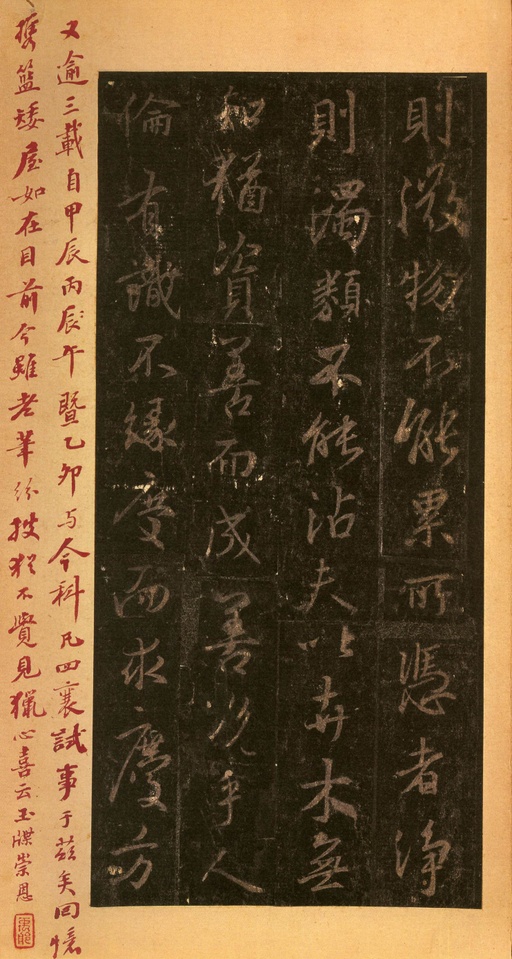 則微物不能累所憑者淨
則濁類不能沾夫以卉木無
知猶資善而成善況乎人
倫有識不緣慶而求慶方
又逾三載自甲辰丙辰午暨乙卯与今科凡四襄試事于茲矣回憶
携籃矮屋如在目前今雖老筆紛披猶不覺見獵心喜云玉牒崇恩